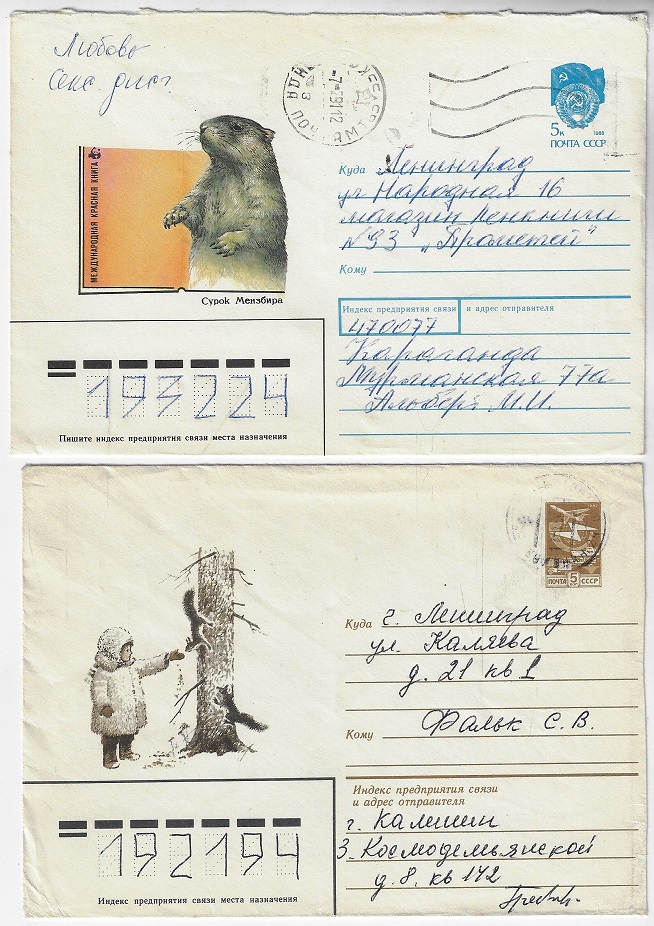 Любовь
Секс. дист.
7-7-9112
ПОЧТАМТ
5к 1988
ПОЧТА СССР
МЕЖДУНАРОДНАЯ КРАСНАЯ КНИГА
Сурок Мензбира
Куда Ленинград
ул Народная 16
магазин Ленкниги
№93 „Прометей"
Кому
Индекс предприятия связи и адрес отправителя
470077
Караганда
Мурманская 77а
Альберг М.И.
193224
Пишите индекс предприятия связи места назначения
ПОЧТА 5 СССР
Куда г. Ленинград
ул. Каляева
д. 21 кв 1
Кому Фальк С.В.
Индекс предприятия связи
и адрес отправителя
г. Калинин
З. Космодемьянской
д. 8. кв 142
192194
Индекс предприятия связи места назначения